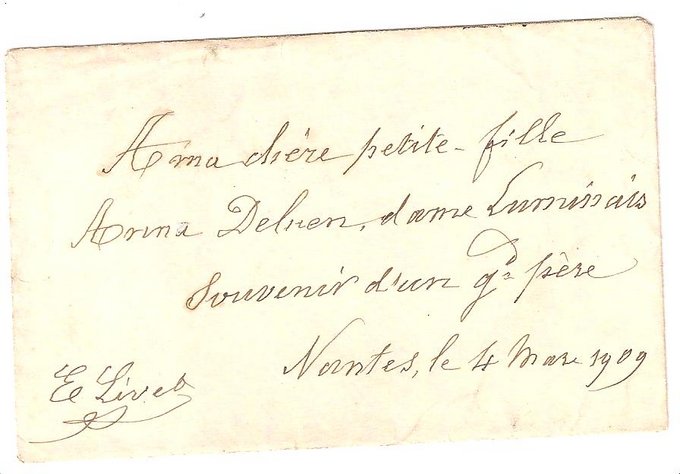 A ma chère petite-fille
Anna Delven, dame Luminais
Souvenir d'un gd père
Nantes, le 4 Mars 1909
E Livet